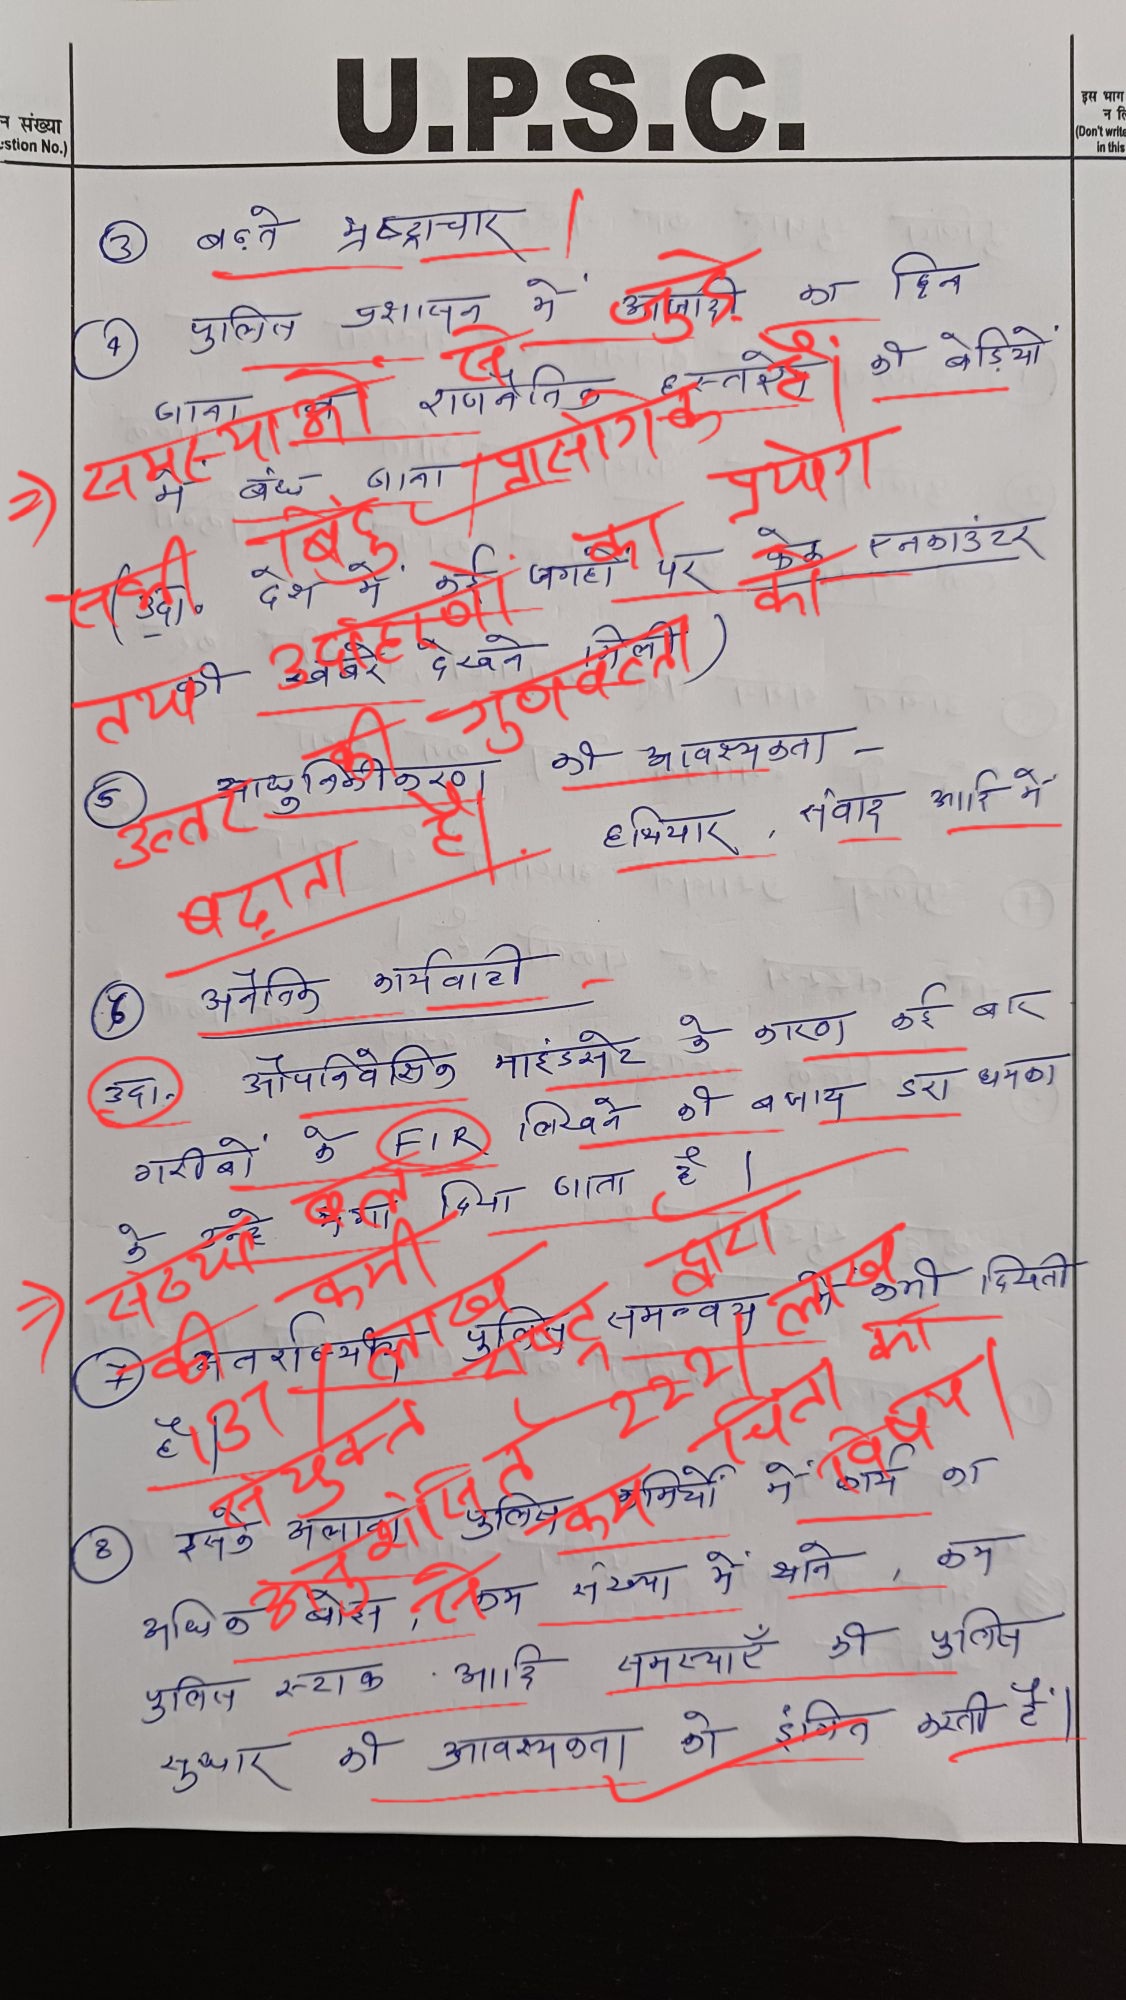 U.P.S.C.
न संख्या
estion No.)
इस भाग
न लि
(Don't write
in this
③ बढ़ते भ्रष्टाचार
④ पुलिस प्रशासन में आजादी का छिन
जाना व राजनैतिक हस्तक्षेप की बेड़ियों
में बंध जाना
(उदा. देश में कई जगहों पर फेक एनकाउंटर
की खबरें देखने मिली)
⇒ समस्याओं से जुड़े
सभी बिंदु प्रासंगिक हैं।
तथा उदाहरणों का प्रयोग
उत्तर की गुणवत्ता को
बढ़ाता है।
⑤ आधुनिकीकरण की आवश्यकता –
हथियार, संवाद आदि में
⑥ अनैतिक कार्यवाही –
उदा. औपनिवेसिक माइंडसेट के कारण कई बार
गरीबों के FIR लिखने की बजाय डरा धमका
के उन्हें भगा दिया जाता है।
⑦ अंतर्राज्यीय पुलिस समन्वय में कमी दिखती
है।
⇒ संख्या बल
की कमी
137 / लाख
संयुक्त राष्ट्र द्वारा
अनुशंसित 222 / लाख
से कम चिंता का
विषय।
⑧ इसके अलावा पुलिस कर्मियों में कार्य का
अधिक बोझ, कम संख्या में थाने, कम
पुलिस स्टाफ आदि समस्याएँ की पुलिस
सुधार की आवश्यकता को इंगित करती हैं।